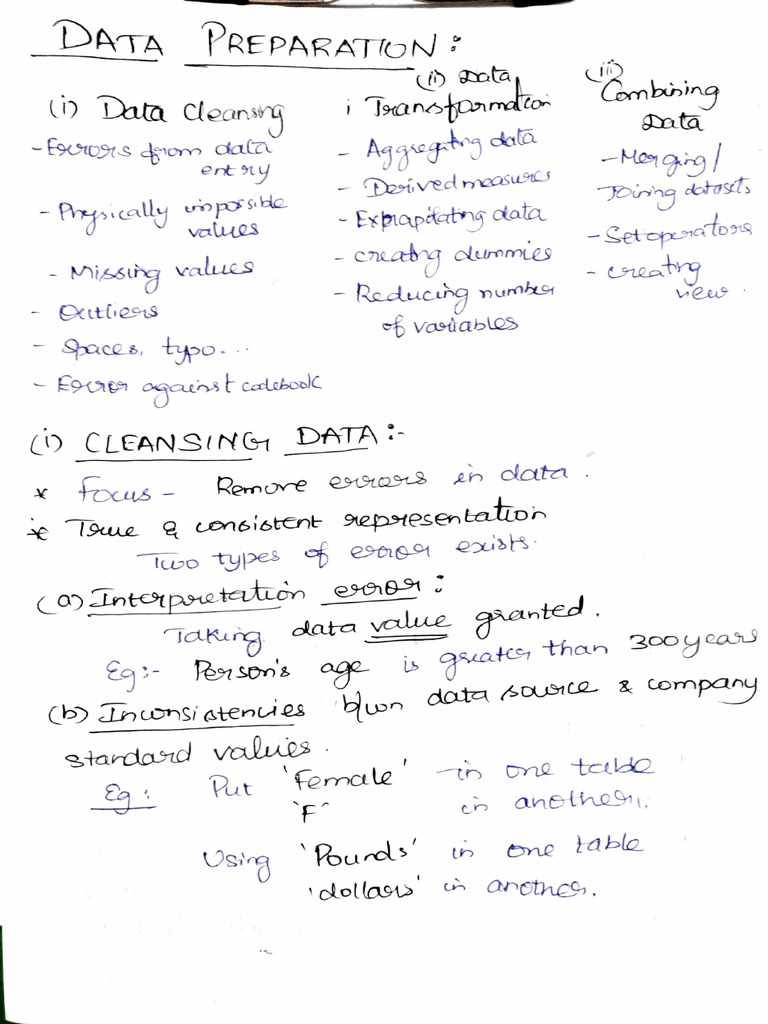 DATA PREPARATION:
(i) Data Cleansing
- Errors from data
entry
- Physically impossible
values
- Missing values
- Outliers
- Spaces, typo...
- Error against codebook
(ii) Data
Transformation
- Aggregating data
- Derived measures
- Extrapolating data
- creating dummies
- Reducing number
of variables
(iii)
Combining
Data
- Merging/
Joining datasets
- Set operators
- creating
view.
(i) CLEANSING DATA:-
* Focus - Remove errors in data.
* True & consistent representation
Two types of error exists.
(a) Interpretation error:
Taking data value granted.
Eg:- Person's age is greater than 300 years
(b) Inconsistencies b/wn data source & company
standard values.
Eg: Put 'Female' in one table
'F' in another.
Using 'Pounds' in one table
'dollars' in another.